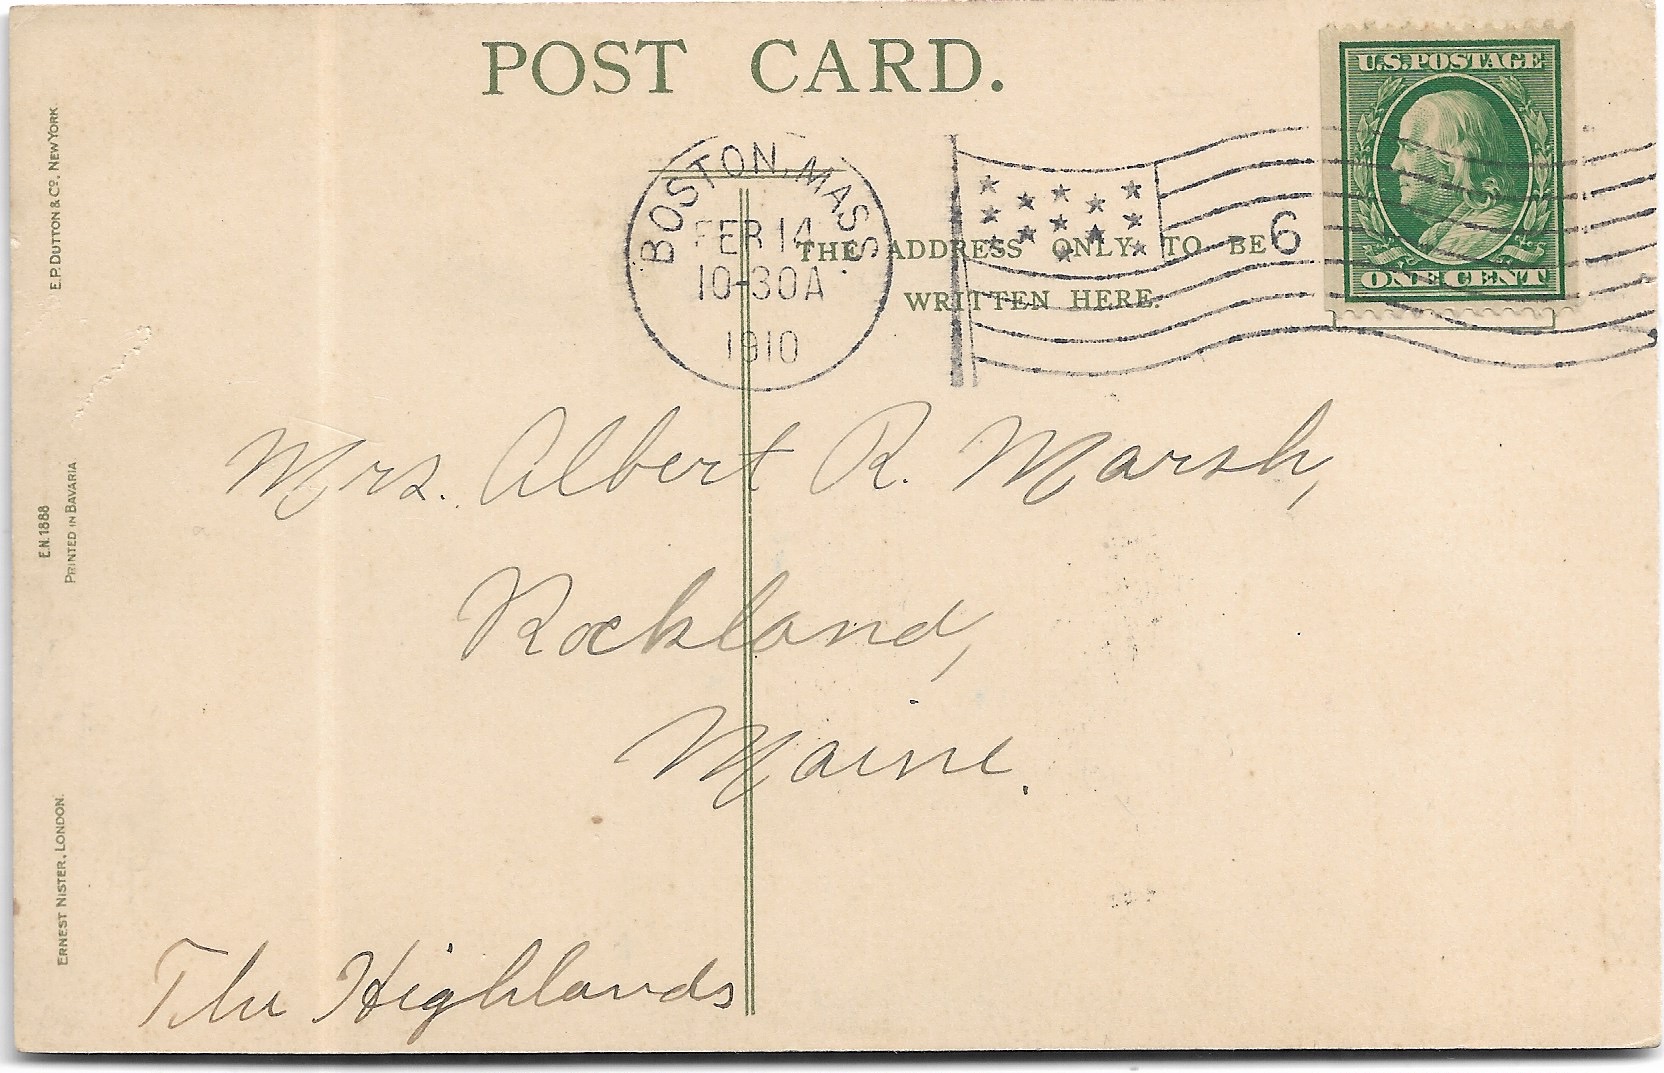 POST CARD.
U.S. POSTAGE
ONE CENT
BOSTON, MASS.
FEB 14
10-30A
1910
6
THE ADDRESS ONLY TO BE
WRITTEN HERE.
Mrs. Albert R. Marsh,
Rockland,
Maine.
The Highlands
E.P. DUTTON & Co. NEW YORK
E.N. 1888
PRINTED IN BAVARIA
ERNEST NISTER, LONDON.